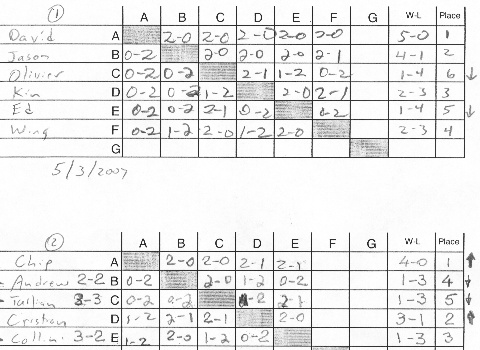 1
A B C D E F G W-L Place
David A 2-0 2-0 2-0 2-0 2-0 5-0 1
Jason B 0-2 2-0 2-0 2-0 2-1 4-1 2
Olivier C 0-2 0-2 2-1 1-2 0-2 1-4 6 ↓
Kin D 0-2 0-2 1-2 2-0 2-1 2-3 3
Ed E 0-2 0-2 2-1 0-2 0-2 1-4 5 ↓
Wing F 0-2 1-2 2-0 1-2 2-0 2-3 4
G
5/3/2007
2
A B C D E F G W-L Place
Chip A 2-0 2-0 2-1 2-1 4-0 1 ↑
Andrew 2-2 B 0-2 2-0 1-2 0-2 1-3 4 ↓
3-3 C 0-2 0-2 -2 2-1 1-3 5 ↓
Cristian D 1-2 2-1 2-1 2-0 3-1 2 ↑
3-2 E 1-2 2-0 1-2 0-2 1-3 3